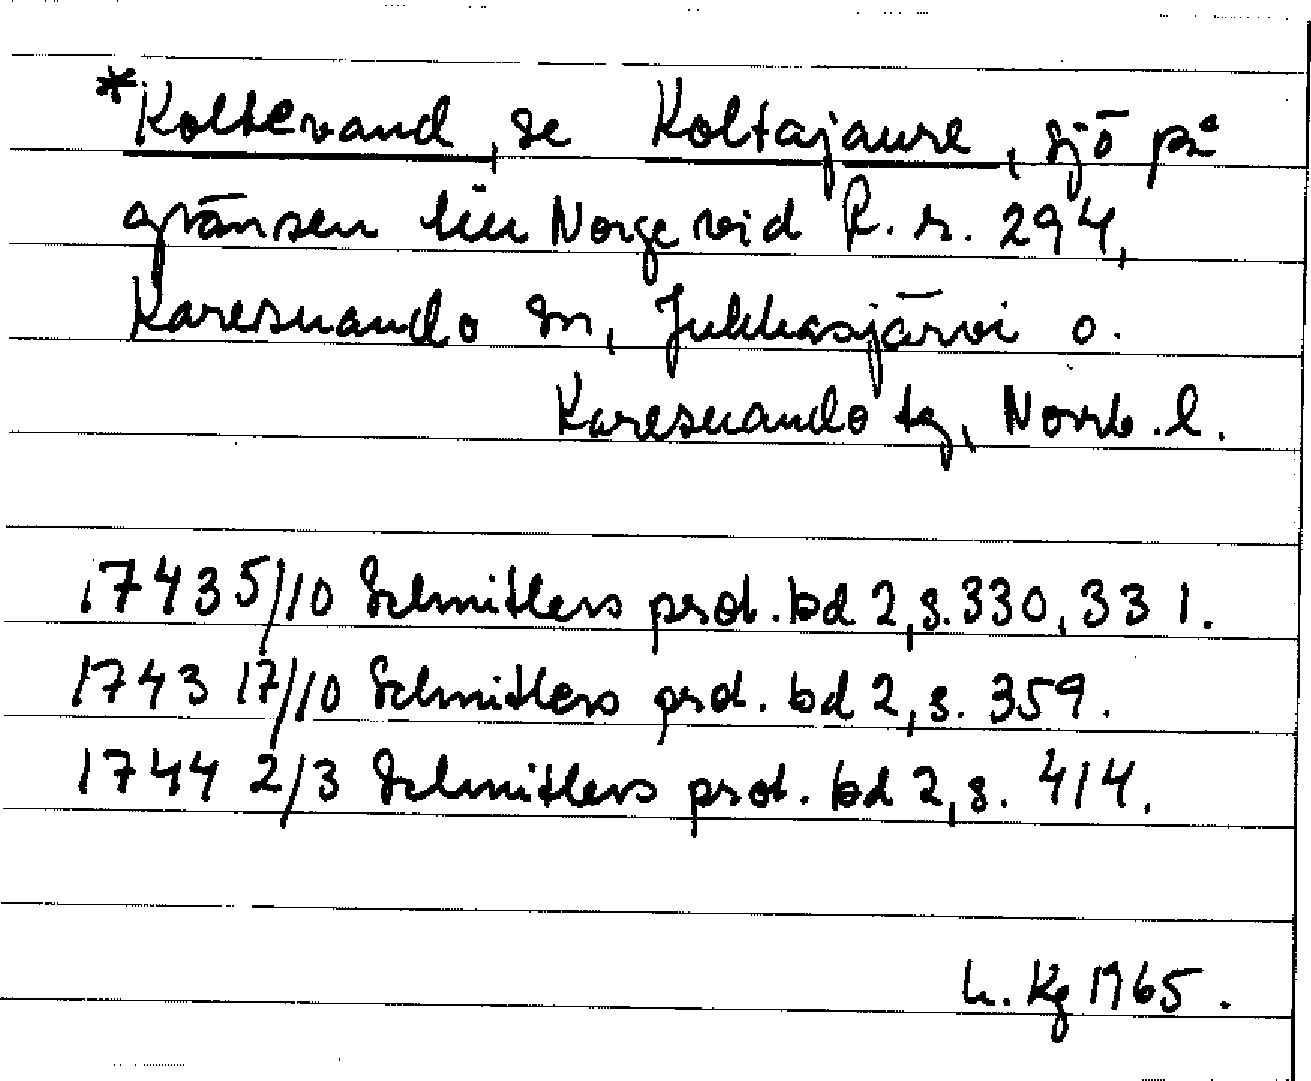 *Koltevand, se Koltajaure, sjö på
gränsen till Norge vid R. r. 294,
Karesuando sn, Jukkasjärvi o.
Karesuando tg, Norrb. l.
1743 5/10 Schnitlers prot. bd 2, s. 330, 331.
1743 17/10 Schnitlers prot. bd 2, s. 359.
1744 2/3 Schnitlers prot. bd 2, s. 414.
Kg 1965.